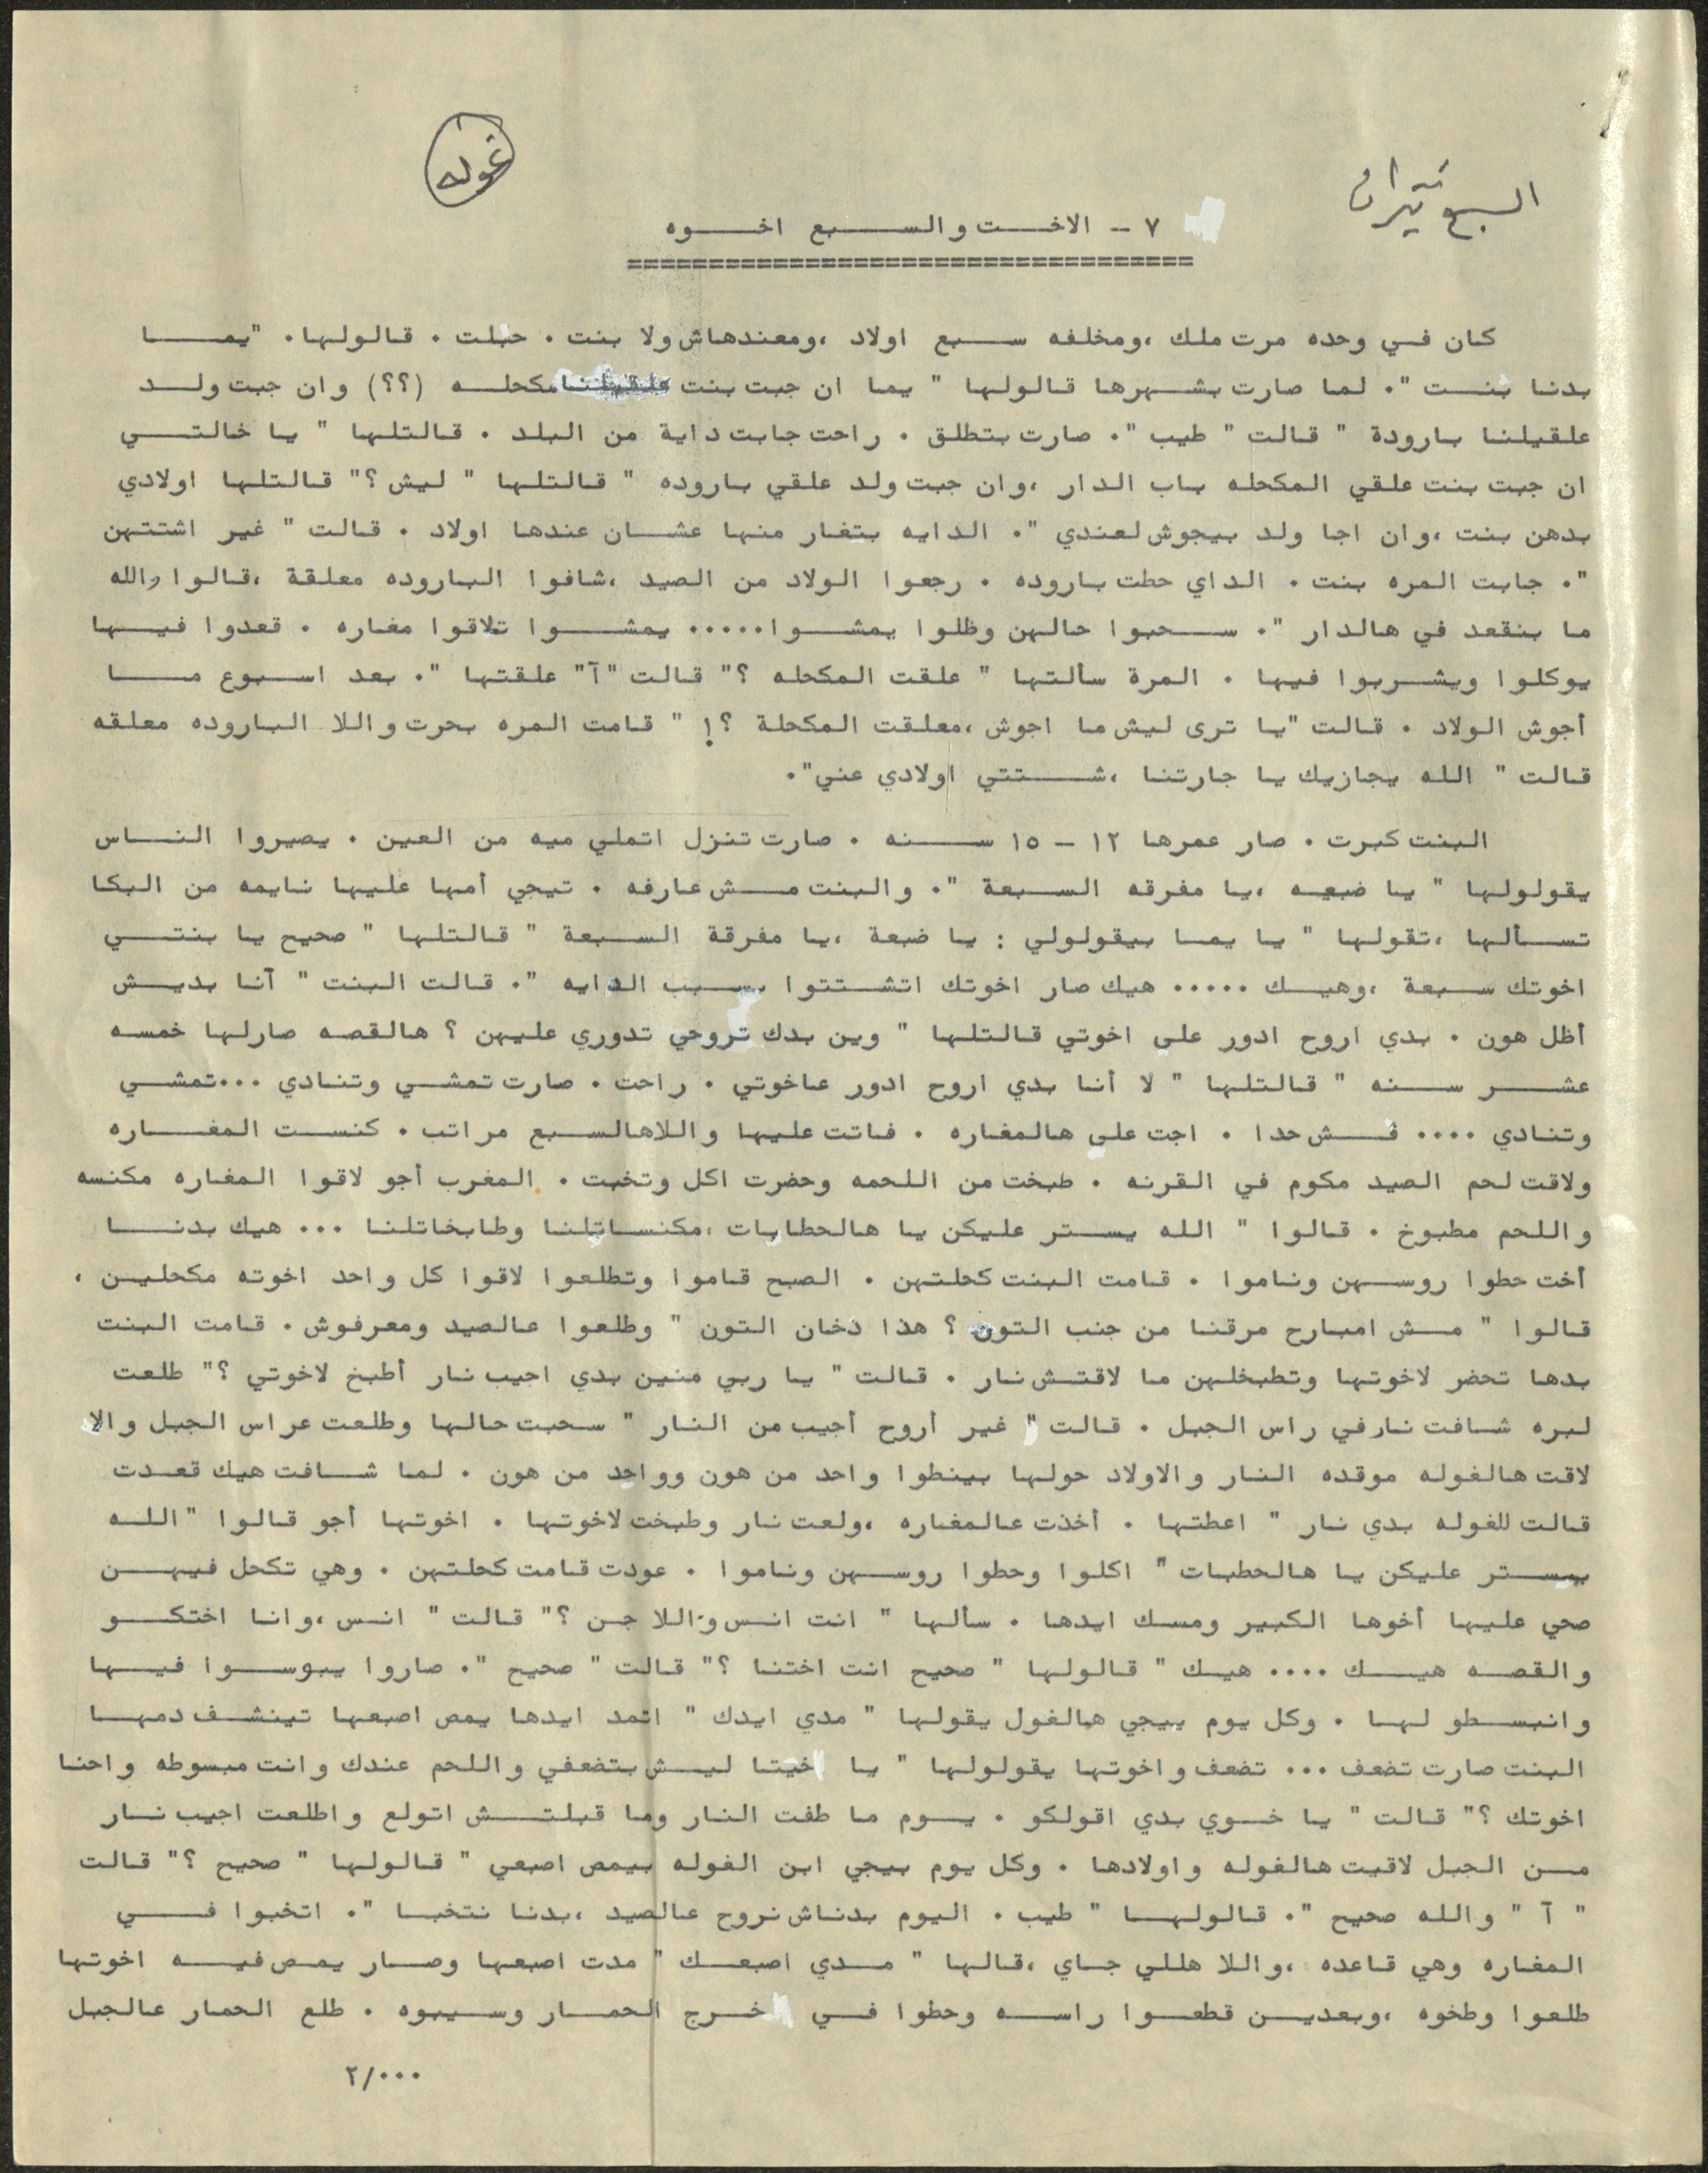 غوله
السبع تيران
٧ - الاخت والسبع اخوه
كان في وحده مرت ملك ،ومخلفه سبع اولاد ،ومعندهاش ولا بنت . حبلت . قالولها. "يما
بدنا بنت ". لما صارت بشهرها قالولها " يما ان جبت بنت علقيلنا مكحله (؟؟) وان جبت ولد
علقيلنا بارودة " قالت " طيب ". صارت بتطلق . راحت جابت داية من البلد . قالتلها " يا خالتي
ان جبت بنت علقي المكحله باب الدار ،وان جبت ولد علقي باروده " قالتلها " ليش ؟" قالتلها اولادي
بدهن بنت ،وان اجا ولد بيجوش لعندي ". الدايه بتغار منها عشان عندها اولاد . قالت " غير اشتتهن
". جابت المره بنت . الداي حطت باروده . رجعوا الولاد من الصيد ،شافوا الباروده معلقة ،قالوا والله
ما بنقعد في هالدار ". سحبوا حالهن وظلوا يمشوا..... يمشوا تلاقوا مغاره . قعدوا فيها
يوكلوا ويشربوا فيها . المرة سألتها " علقت المكحله ؟" قالت "آ" علقتها ". بعد اسبوع ما
أجوش الولاد . قالت "يا ترى ليش ما اجوش ،معلقت المكحلة ؟! " قامت المره بحرت واللا الباروده معلقه
قالت " الله يجازيك يا جارتنا ،شتتي اولادي عني".
البنت كبرت . صار عمرها ١٢ - ١٥ سنه . صارت تنزل اتملي ميه من العين . يصيروا الناس
يقولولها " يا ضبعه ،يا مفرقه السبعة ". والبنت مش عارفه . تيجي أمها عليها نايمه من البكا
تسألها ،تقولها " يا يما بيقولولي : يا ضبعة ،يا مفرقة السبعة " قالتلها " صحيح يا بنتي
اخوتك سبعة ،وهيك ..... هيك صار اخوتك اتشتتوا بسبب الدايه ". قالت البنت " آنا بديش
أظل هون . بدي اروح ادور على اخوتي قالتلها " وين بدك تروحي تدوري عليهن ؟ هالقصه صارلها خمسه
عشر سنه " قالتلها " لا أنا بدي اروح ادور عاخوتي . راحت . صارت تمشي وتنادي ...تمشي
وتنادي .... فش حدا . اجت على هالمغاره . فاتت عليها واللاهالسبع مراتب . كنست المغاره
ولاقت لحم الصيد مكوم في القرنه . طبخت من اللحمه وحضرت اكل وتخبت . المغرب أجو لاقوا المغاره مكنسه
واللحم مطبوخ . قالوا " الله يستر عليكن يا هالحطابات ،مكنساتلنا وطابخاتلنا ... هيك بدنا
أخت حطوا روسهن وناموا . قامت البنت كحلتهن . الصبح قاموا وتطلعوا لاقوا كل واحد اخوته مكحلين ،
قالوا " مش امبارح مرقنا من جنب التون ؟ هذا دخان التون " وطلعوا عالصيد ومعرفوش . قامت البنت
بدها تحضر لاخوتها وتطبخلهن ما لاقتش نار . قالت " يا ربي منين بدي اجيب نار أطبخ لاخوتي ؟" طلعت
لبره شافت نار في راس الجبل . قالت " غير أروح أجيب من النار " سحبت حالها وطلعت عراس الجبل والا
لاقت هالغوله موقده النار والاولاد حولها بينطوا واحد من هون وواحد من هون . لما شافت هيك قعدت
قالت للغوله بدي نار " اعطتها . أخذت عالمغاره ،ولعت نار وطبخت لاخوتها . اخوتها أجو قالوا "الله
يستر عليكن يا هالحطبات " اكلوا وحطوا روسهن وناموا . عودت قامت كحلتهن . وهي تكحل فيهن
صحي عليها أخوها الكبير ومسك ايدها . سألها " انت انس واللا جن ؟" قالت " انس ،وانا اختكو
والقصه هيك .... هيك " قالولها " صحيح انت اختنا ؟" قالت " صحيح ". صاروا يبوسوا فيها
وانبسطو لها . وكل يوم بيجي هالغول يقولها " مدي ايدك " اتمد ايدها يمص اصبعها تينشف دمها
البنت صارت تضعف ... تضعف واخوتها يقولولها " يا اخيتا ليش بتضعفي واللحم عندك وانت مبسوطه واحنا
اخوتك ؟" قالت " يا خوي بدي اقولكو . يوم ما طفت النار وما قبلتش اتولع واطلعت اجيب نار
من الجبل لاقيت هالغوله واولادها . وكل يوم بيجي ابن الغوله بيمص اصبعي " قالولها " صحيح ؟" قالت
" آ " والله صحيح ". قالولها " طيب . اليوم بدناش نروح عالصيد ،بدنا نتخبا ". اتخبوا في
المغاره وهي قاعده ،واللا هللي جاي ،قالها " مدي اصبعك " مدت اصبعها وصار يمص فيه اخوتها
طلعوا وطخوه ،وبعدين قطعوا راسه وحطوا في خرج الحمار وسيبوه . طلع الحمار عالجبل
٢/٠٠٠